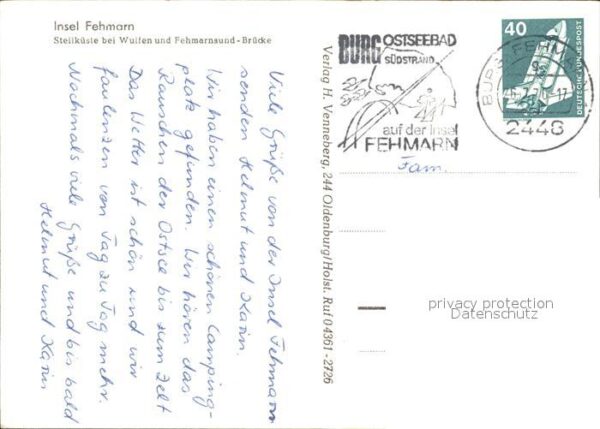 Insel Fehmarn
Steilküste bei Wulfen und Fehmarnsund-Brücke
Viele Grüße von der Insel Fehmarn
senden Helmut und Karin.
Wir haben einen schönen Camping-
platz gefunden. Wir hören das
Rauschen der Ostsee bis zum Zelt
Das Wetter ist schön und wir
faulenzen von Tag zu Tag mehr.
Nochmals viele Grüße und bis bald
Helmut und Karin
Verlag H. Venneberg, 244 Oldenburg/Holst. Ruf 04361-2726
BURG OSTSEEBAD
SÜDSTRAND
auf der Insel
FEHMARN
40
DEUTSCHE BUNDESPOST
BURG FEHM
2448
Fam.
privacy protection
Datenschutz